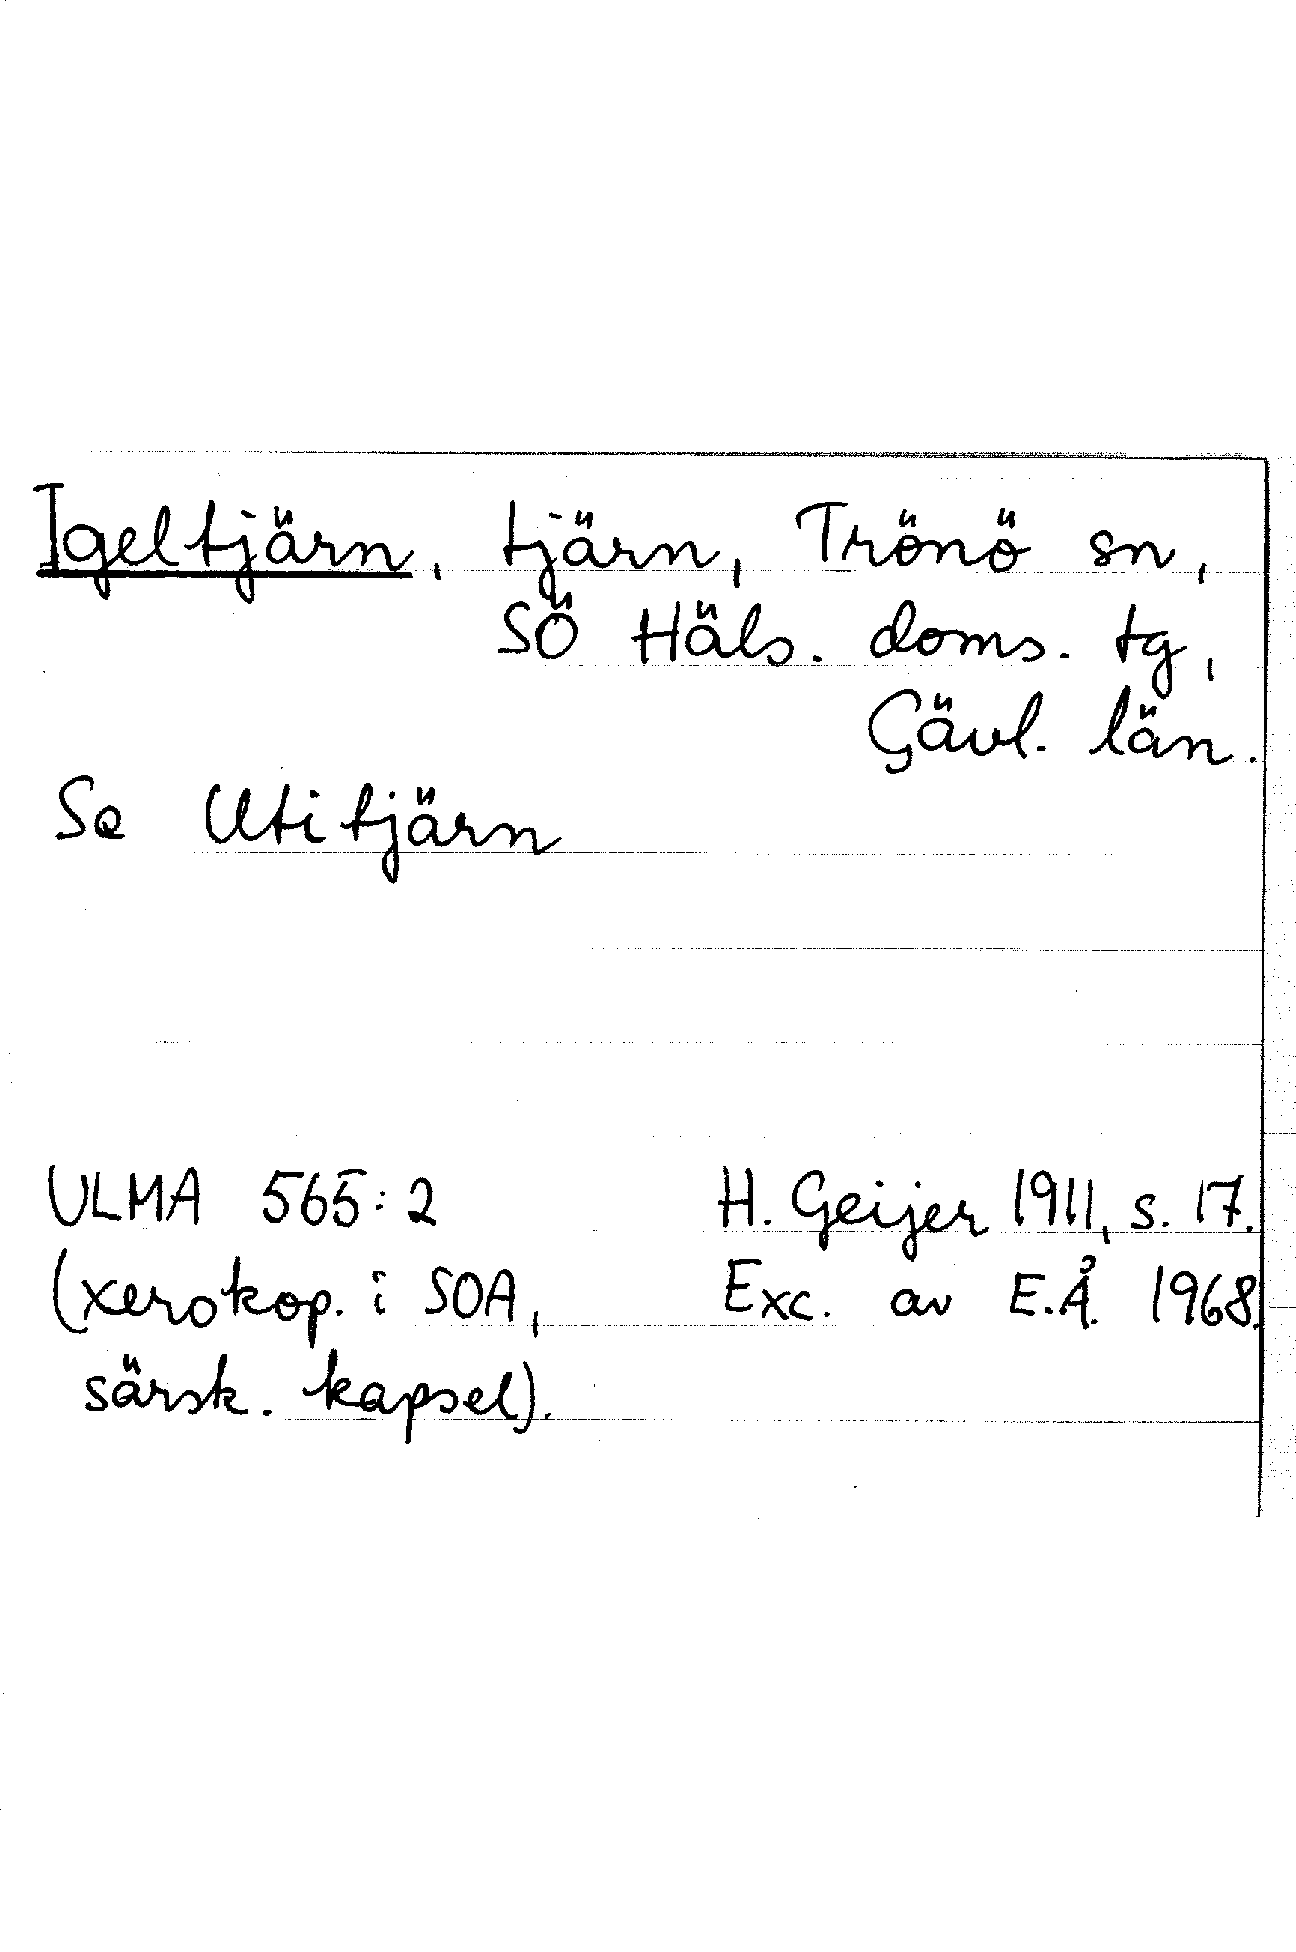 Igeltjärn, tjärn, Trönö sn,
SÖ Häls. doms. tg,
Gävl. län.
Se Utitjärn
ULMA 565:2 H. Geijer 1911, s. 17.
(xerokop. i SOA, Exc. av E.Å. 1968.
särsk. kapsel).